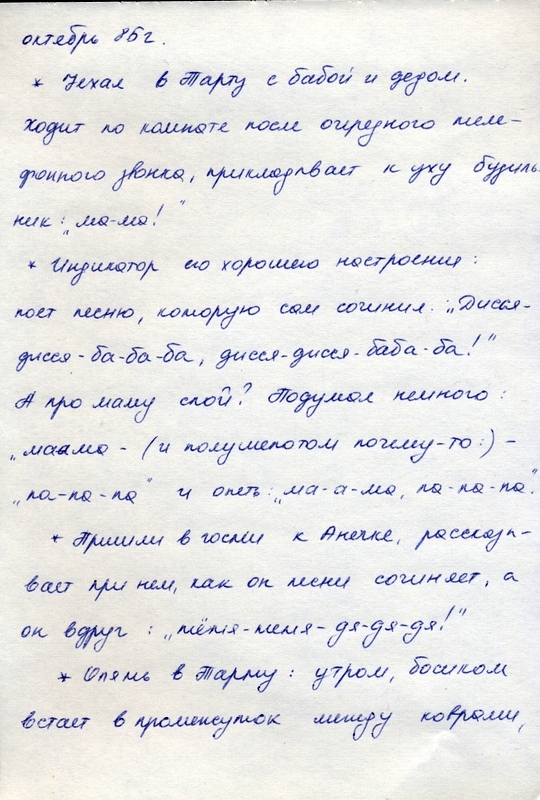 октябрь 86 г.
* Уехал в Тарту с бабой и дедом.
Ходит по комнате после очередного теле-
фонного звонка, прикладывает к уху будиль-
ник: „ма-ма!"
* Индикатор его хорошего настроения:
поет песню, которую сам сочинил: „Дисся-
дисся-ба-ба-ба, дисся-дисся-баба-ба!"
А про маму спой? Подумал немного:
„маама - (и полушепотом почему-то:) -
„па-па-па" и опять: „ма-а-ма, па-па-па".
* Пришли в гости к Анечке, рассказы-
вает при нем, как он песни сочиняет, а
он вдруг: „тётя-теня-дя-дя-дя!"
* Опять в Тарту: утром, босиком
встает в промежуток между коврами,